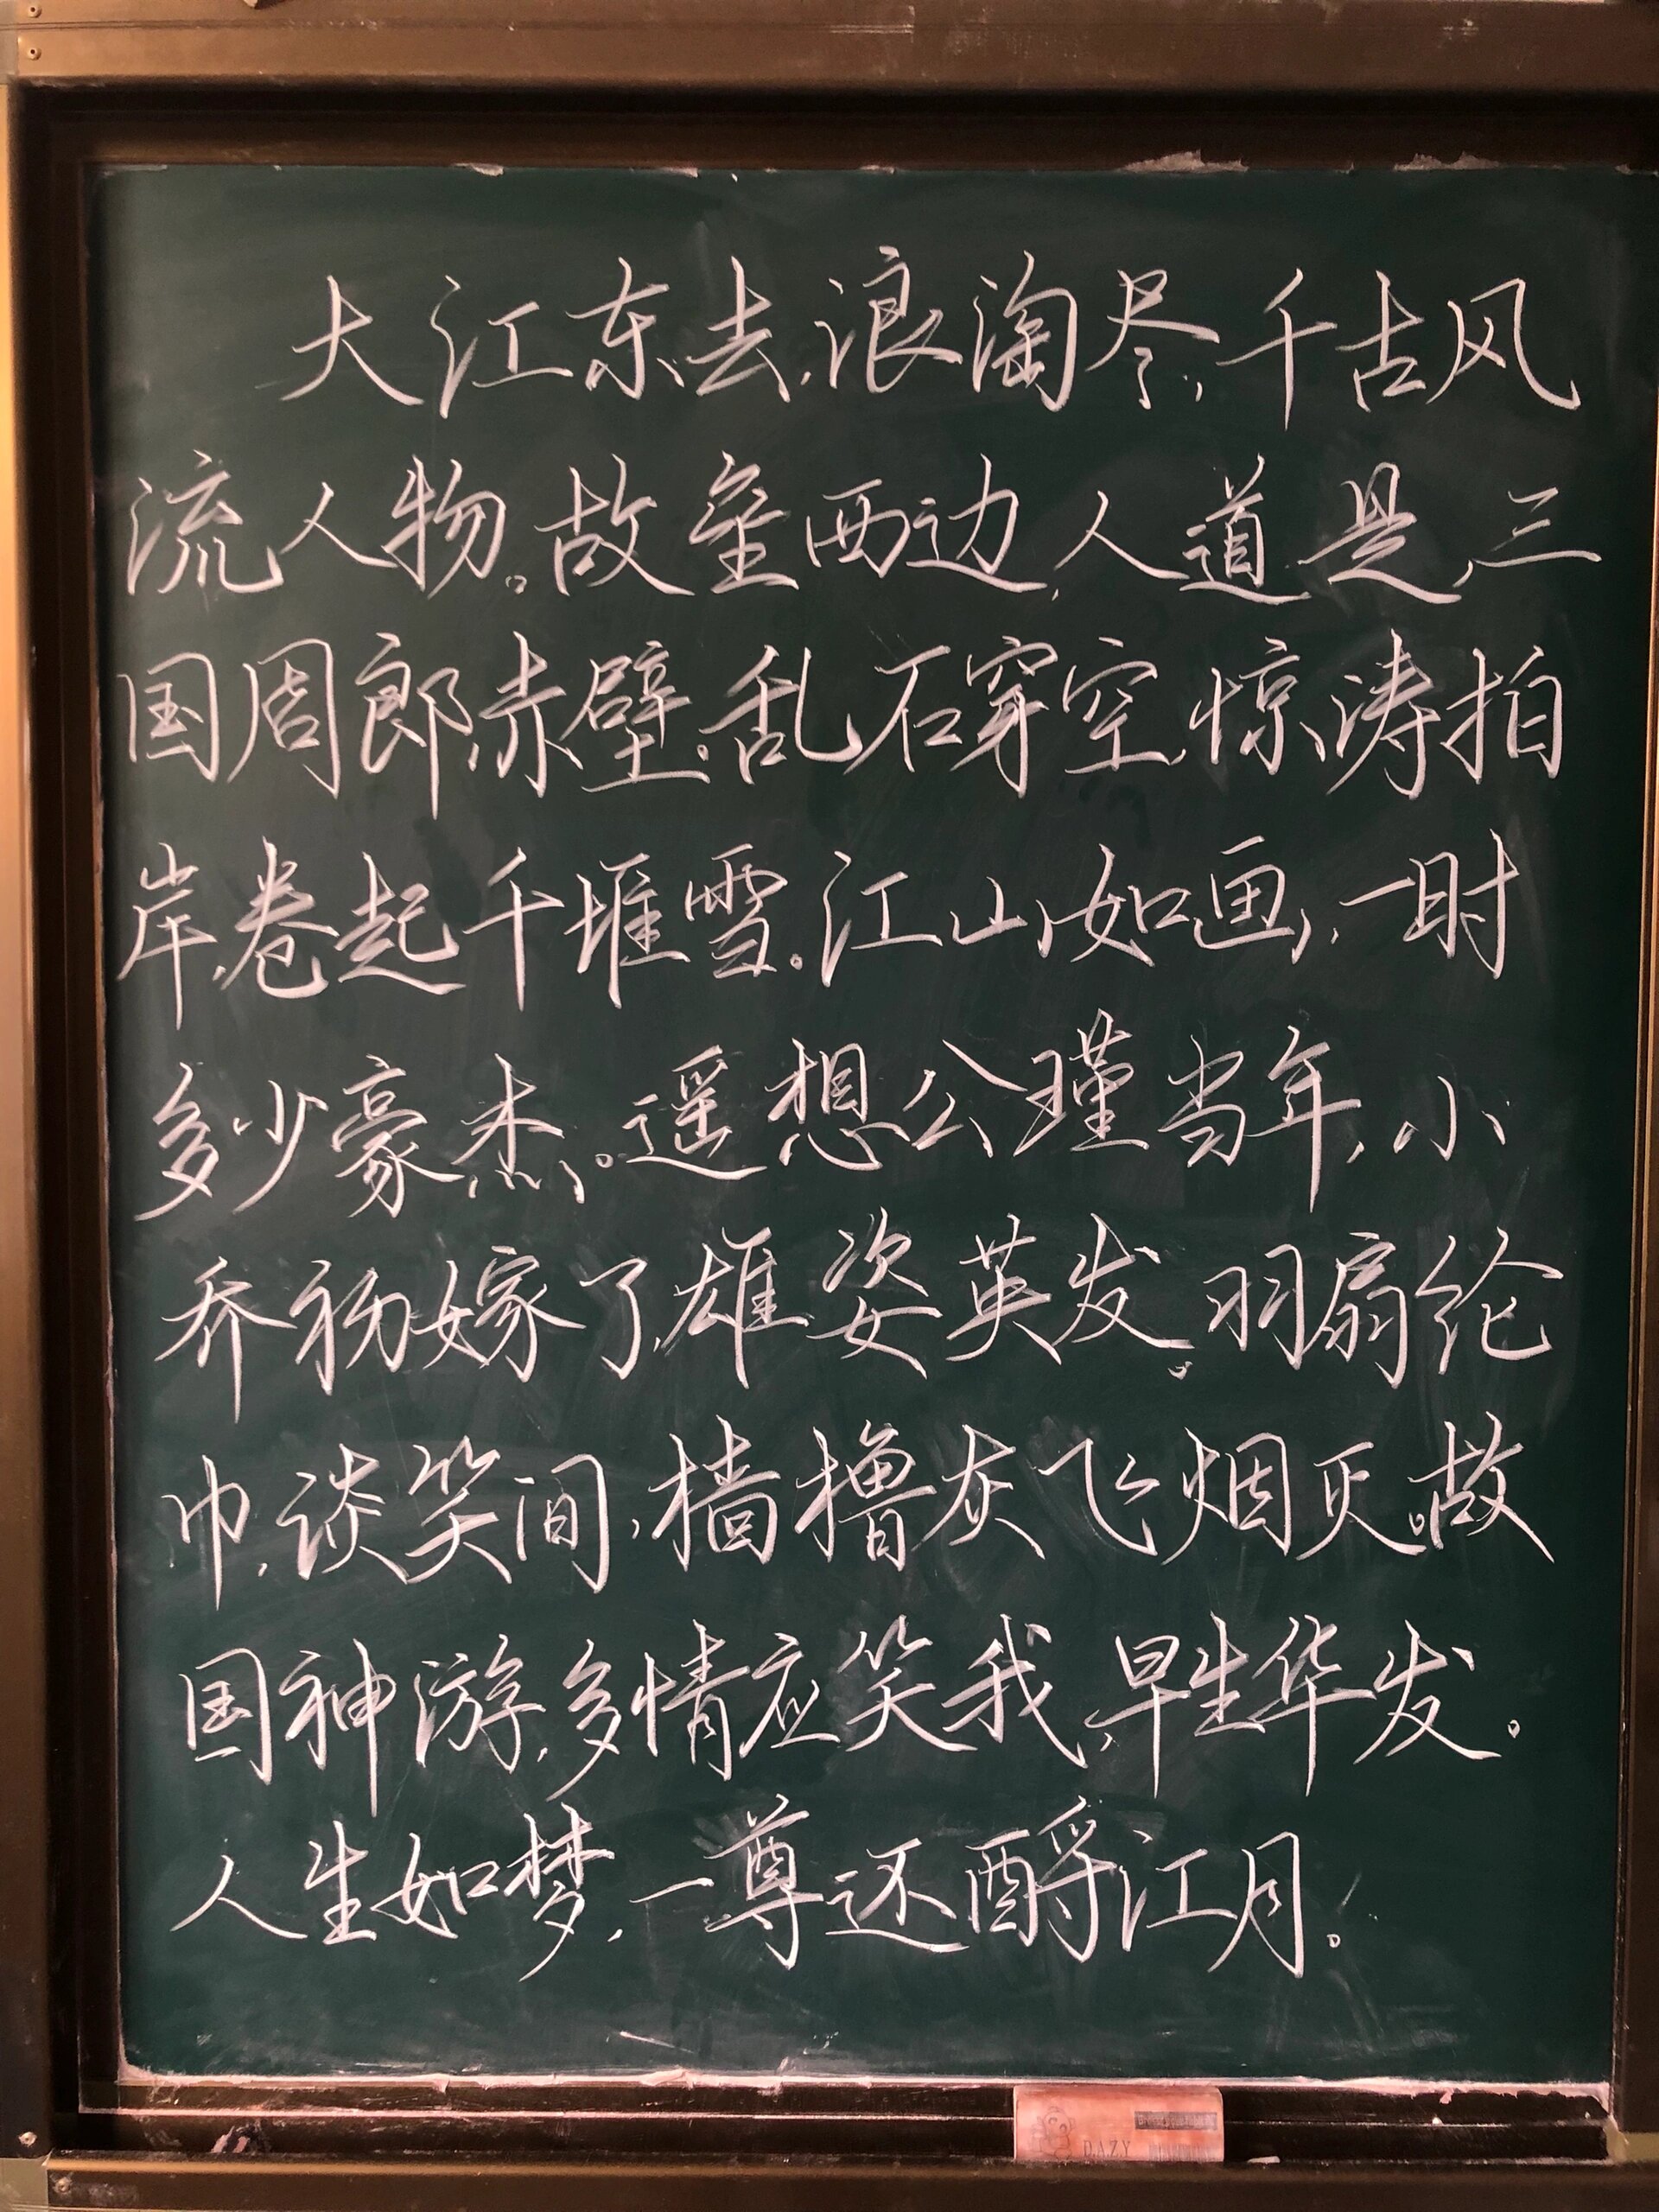 大江东去,浪淘尽,千古风
流人物。故垒西边,人道是,三
国周郎赤壁。乱石穿空,惊涛拍
岸,卷起千堆雪。江山如画,一时
多少豪杰。遥想公瑾当年,小
乔初嫁了,雄姿英发。羽扇纶
巾,谈笑间,樯橹灰飞烟灭。故
国神游,多情应笑我,早生华发。
人生如梦,一尊还酹江月。
DAZY